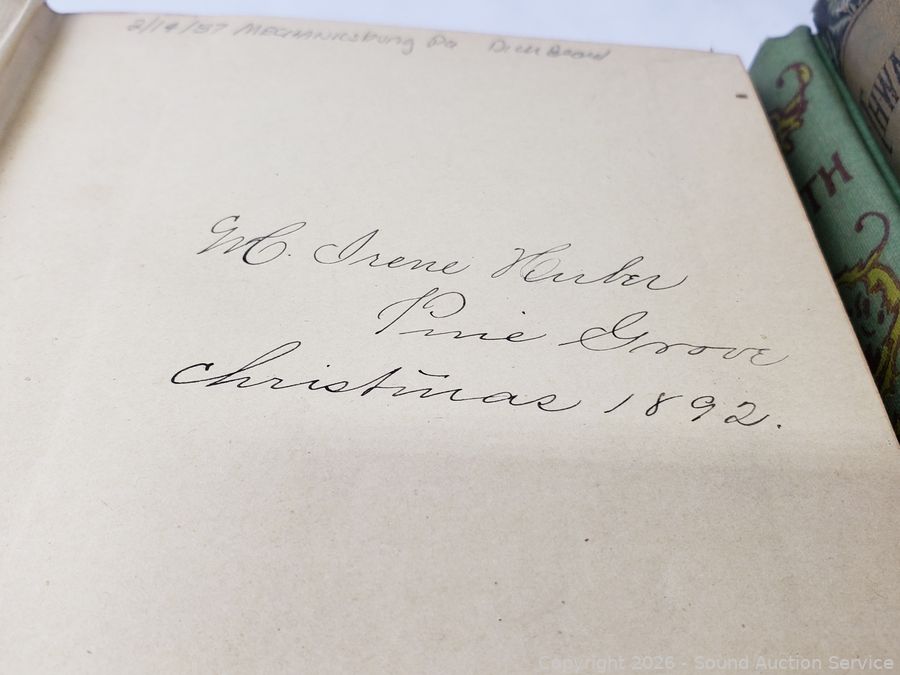 2/14/57 Mechanicsburg Pa
M. Irene Huber
Pine Grove
Christmas 1892.
TH
THWA
Copyright 2026 - Sound Auction Service